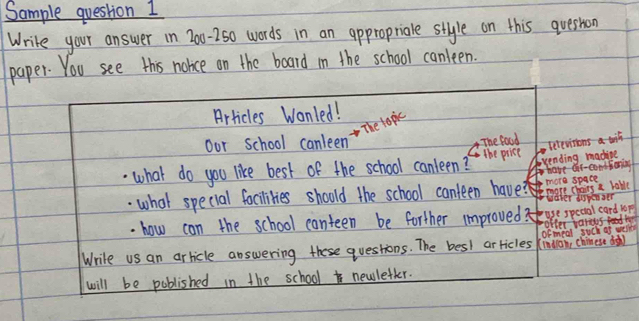 Sample question 1
Write your answer in 200-250 words in an appropriate style on this question
paper. You see this notice on the board in the school canteen.
Articles Wanted!
Our school canteen → The topic
• what do you like best of the school canteen? → The food
→ the price
• what special facilities should the school canteen have?
→ televisions & wifi
→ vending machine
→ have air-conditioning
→ more space
→ more chairs & table
→ water dispenser
• how can the school canteen be further improved?
→ use special card to pay
→ offer various food
of meal such as western
(indian, chinese dish)
Write us an article answering these questions. The best articles
will be published in the school newletter.